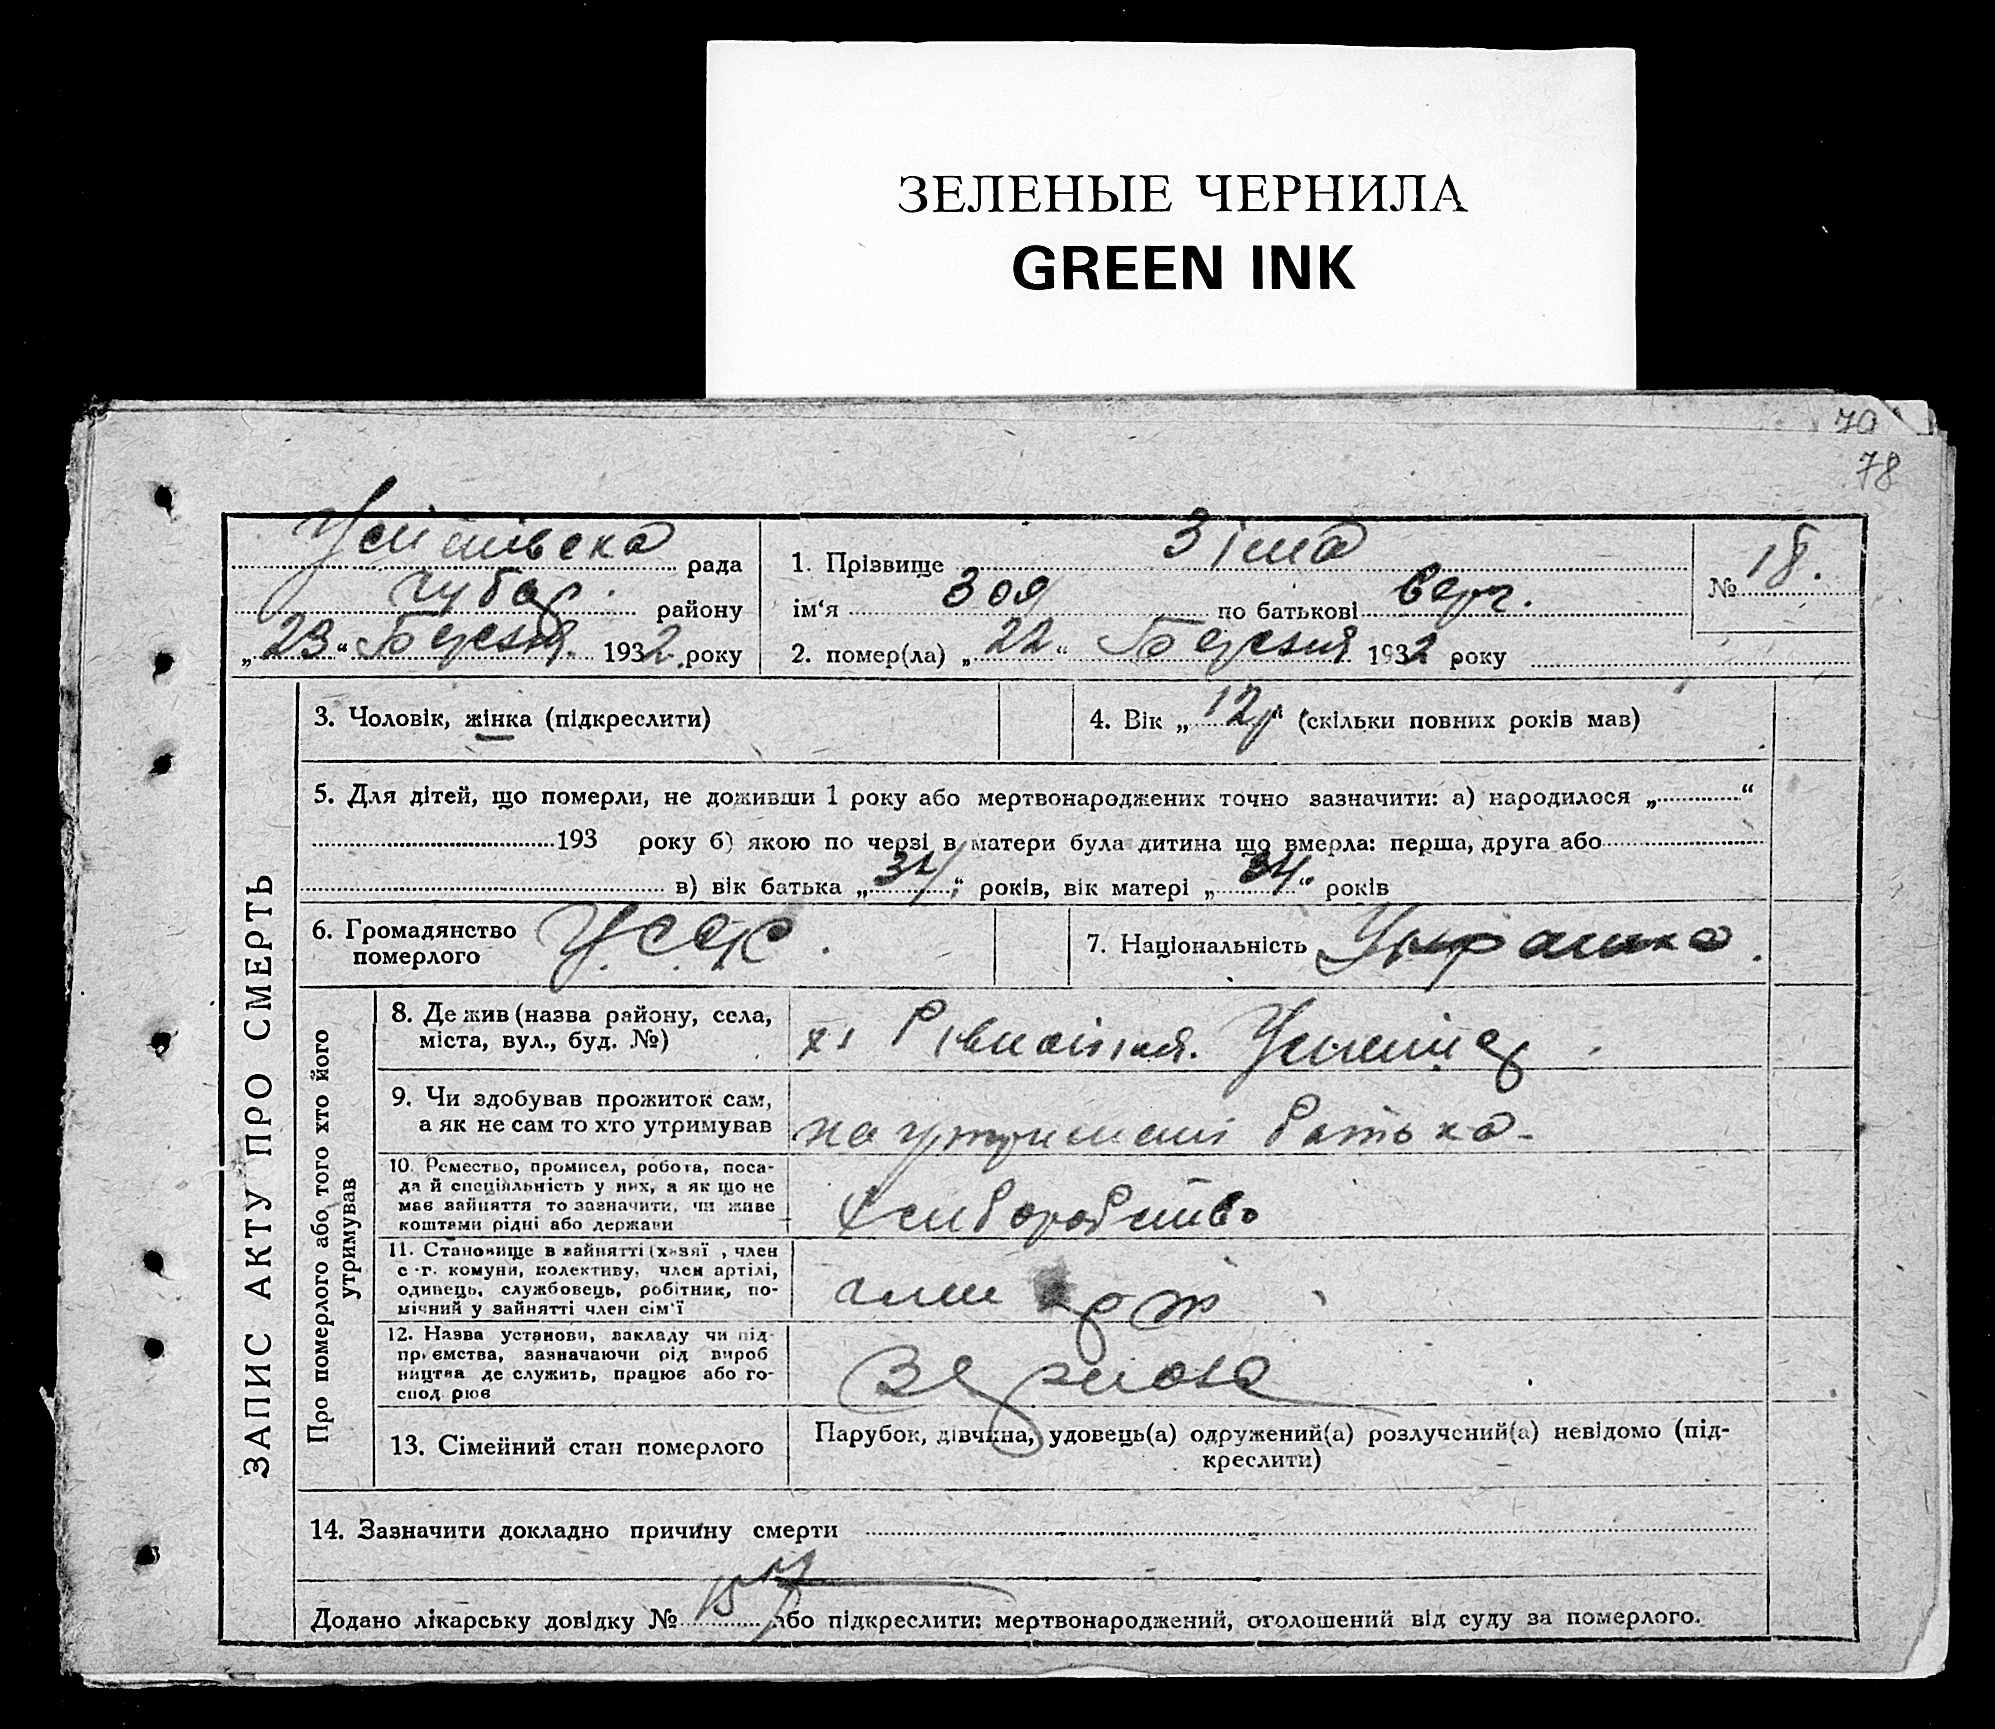 ЗЕЛЕНЫЕ ЧЕРНИЛА
GREEN INK
70
78
рада
Чубар. району
„23“ Березня 1932 року
1. Прізвище Зіма
ім‘я Зоя по батькові Серг.
2. помер(ла) „22“ Березня 1932 року
№ 18.
ЗАПИС АКТУ ПРО СМЕРТЬ
3. Чоловік, жінка (підкреслити)
4. Вік „12р“ (скільки повних років мав)
5. Для дітей, що померли, не доживши 1 року або мертвонароджених точно зазначити: а) народилося „ “
193 року б) якою по черзі в матери була дитина що вмерла: перша, друга або
в) вік батька „34“ років, вік матері „34“ років
6. Громадянство
померлого У.С.С.Р.
7. Національність Українка.
Про померлого або того хто його
утримував
8. Де жив (назва району, села,
міста, вул., буд. №)
х.
9. Чи здобував прожиток сам,
а як не сам то хто утримував
на утриманні батька
10. Ремество, промисел, робота, поса-
да й спеціяльність у них, а як що не
має зайняття то зазначити, чи живе
коштами рідні або держави
Хліборобство
11. Становище в зайнятті (хазяї , член
с-г. комуни, колективу, член артілі,
одинець, службовець, робітник, по-
мічний у зайнятті член сім‘ї
член арт
12. Назва установи, закладу чи під-
приємства, зазначаючи рід вироб
ництва де служить, працює або го-
спод рює
13. Сімейний стан померлого
Парубок, дівчина, удовець(а) одружений(а) розлучений(а) невідомо (під-
креслити)
14. Зазначити докладно причину смерти
Додано лікарську довідку № або підкреслити: мертвонароджений, оголошений від суду за померлого.